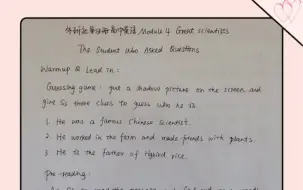 外研社 高中英语 Module 4 Great Scientists
The Student Who Asked Questions
Warmup & Lead in:
Guessing game: put a shadow picture on the screen and
give Ss three clues to guess who he is.
1. He was a famous Chinese Scientist.
2. He worked in the farm and made friends with plants.
3. He is the father of Hybird rice.
Pre-reading: